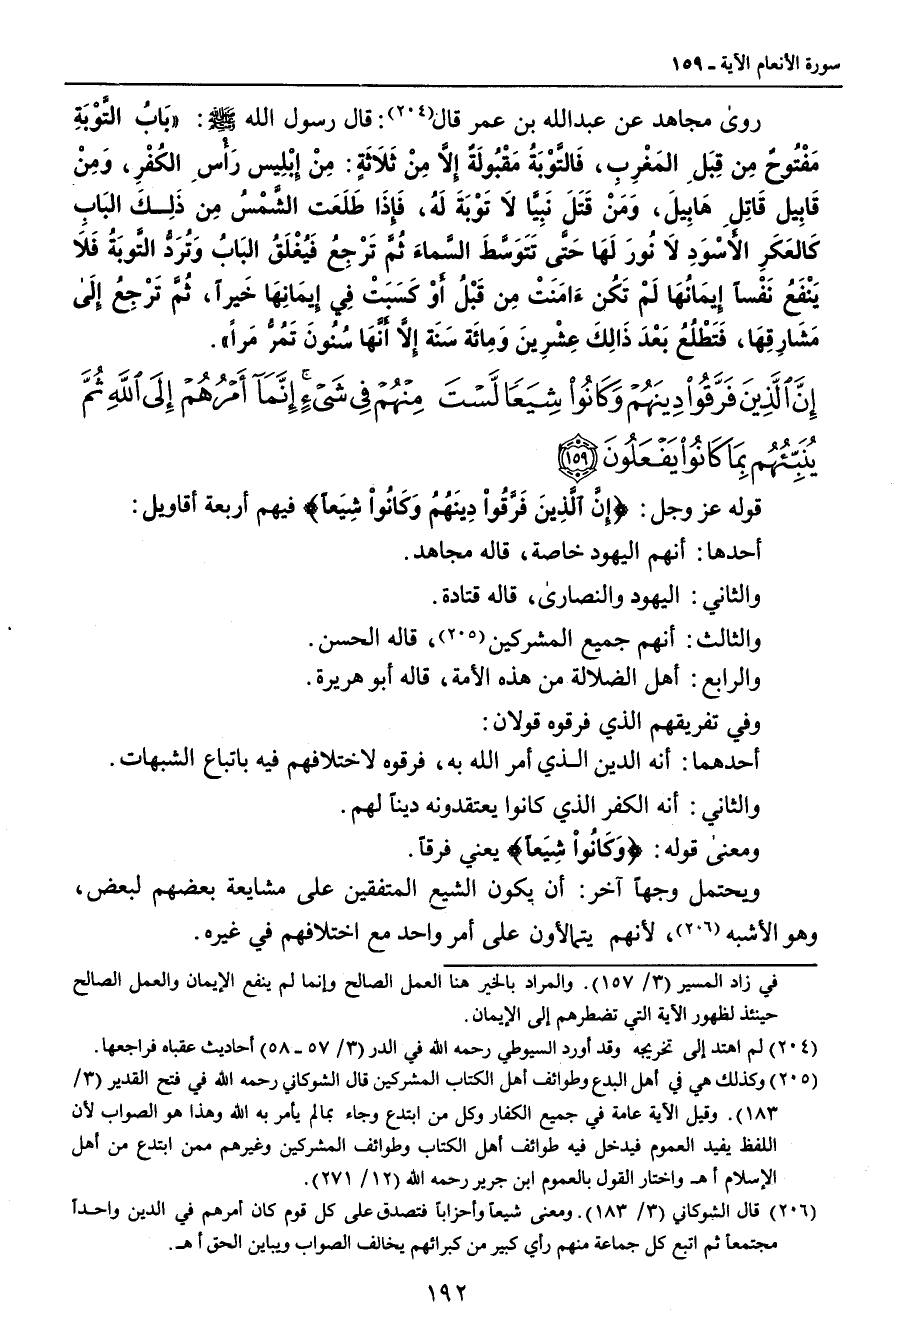 سورة الأنعام الآية ـ ١٥٩
روىٰ مجاهد عن عبدالله بن عمر قال(٢٠٤): قال رسول الله ﷺ: «بَابُ التَّوْبَةِ
مَفْتُوحٌ مِن قِبَلِ المَغْرِبِ، فَالتَّوْبَةُ مَقْبُولَةٌ إِلَّا مِنْ ثَلَاثَةٍ: مِنْ إِبْلِيس رَأْسِ الكُفْرِ، وَمِنْ
قَابِيل قَاتِلِ هَابِيلَ، وَمَنْ قَتَلَ نَبِيًّا لَا تَوْبَةَ لَهُ، فَإِذَا طَلَعَت الشَّمْسُ مِن ذَلِكَ البَابِ
كَالعَكَرِ الأَسْوَدِ لَا نُورَ لَهَا حَتَّى تَتَوَسَّطَ السَّمَاءَ ثُمَّ تَرْجِعُ فَيُغْلَقُ البَابُ وَتُرَدُّ التَّوبَةُ فَلَا
يَنْفَعُ نَفْساً إِيمَانُهَا لَمْ تَكُن ءَامَنَتْ مِن قَبْلُ أَوْ كَسَبَتْ فِي إِيمَانِهَا خَيراً، ثُمَّ تَرْجِعُ إِلَىٰ
مَشَارِقِهَا، فَتَطْلُعُ بَعْدَ ذَالِكَ عِشْرِينَ وَمِائَة سَنَة إِلَّا أَنَّهَا سُنُونَ تَمُرُّ مَراً».
إِنَّ ٱلَّذِينَ فَرَّقُوا۟ دِينَهُمْ وَكَانُوا۟ شِيَعًا لَّسْتَ مِنْهُمْ فِى شَىْءٍ ۚ إِنَّمَآ أَمْرُهُمْ إِلَى ٱللَّهِ ثُمَّ
يُنَبِّئُهُم بِمَا كَانُوا۟ يَفْعَلُونَ ﴿١٥٩﴾
قوله عز وجل: ﴿إِنَّ ٱلَّذِينَ فَرَّقُوا۟ دِينَهُمْ وَكَانُوا۟ شِيَعاً﴾ فيهم أربعة أقاويل:
أحدها: أنهم اليهود خاصة، قاله مجاهد.
والثاني: اليهود والنصارىٰ، قاله قتادة.
والثالث: أنهم جميع المشركين(٢٠٥)، قاله الحسن.
والرابع: أهل الضلالة من هذه الأمة، قاله أبو هريرة.
وفي تفريقهم الذي فرقوه قولان:
أحدهما: أنه الدين الذي أمر الله به، فرقوه لاختلافهم فيه باتباع الشبهات.
والثاني: أنه الكفر الذي كانوا يعتقدونه ديناً لهم.
ومعنىٰ قوله: ﴿وَكَانُوا۟ شِيَعاً﴾ يعني فرقاً.
ويحتمل وجهاً آخر: أن يكون الشيع المتفقين على مشايعة بعضهم لبعض،
وهو الأشبه(٢٠٦)، لأنهم يتمالأون على أمر واحد مع اختلافهم في غيره.
في زاد المسير (٣/ ١٥٧). والمراد بالخير هنا العمل الصالح وإنما لم ينفع الإيمان والعمل الصالح
حينئذ لظهور الآية التي تضطرهم إلى الإيمان.
(٢٠٤) لم اهتد إلى تخريجه وقد أورد السيوطي رحمه الله في الدر (٣/ ٥٧ ـ ٥٨) أحاديث عقباه فراجعها.
(٢٠٥) وكذلك هي في أهل البدع وطوائف أهل الكتاب المشركين قال الشوكاني رحمه الله في فتح القدير (٣/
١٨٣). وقيل الآية عامة في جميع الكفار وكل من ابتدع وجاء بمالم يأمر به الله وهذا هو الصواب لأن
اللفظ يفيد العموم فيدخل فيه طوائف أهل الكتاب وطوائف المشركين وغيرهم ممن ابتدع من أهل
الإسلام أ هـ واختار القول بالعموم ابن جرير رحمه الله (١٢/ ٢٧١).
(٢٠٦) قال الشوكاني (٣/ ١٨٣). ومعنى شيعاً وأحزاباً فتصدق على كل قوم كان أمرهم في الدين واحداً
مجتمعاً ثم اتبع كل جماعة منهم رأي كبير من كبرائهم يخالف الصواب ويباين الحق أ هـ.
١٩٢